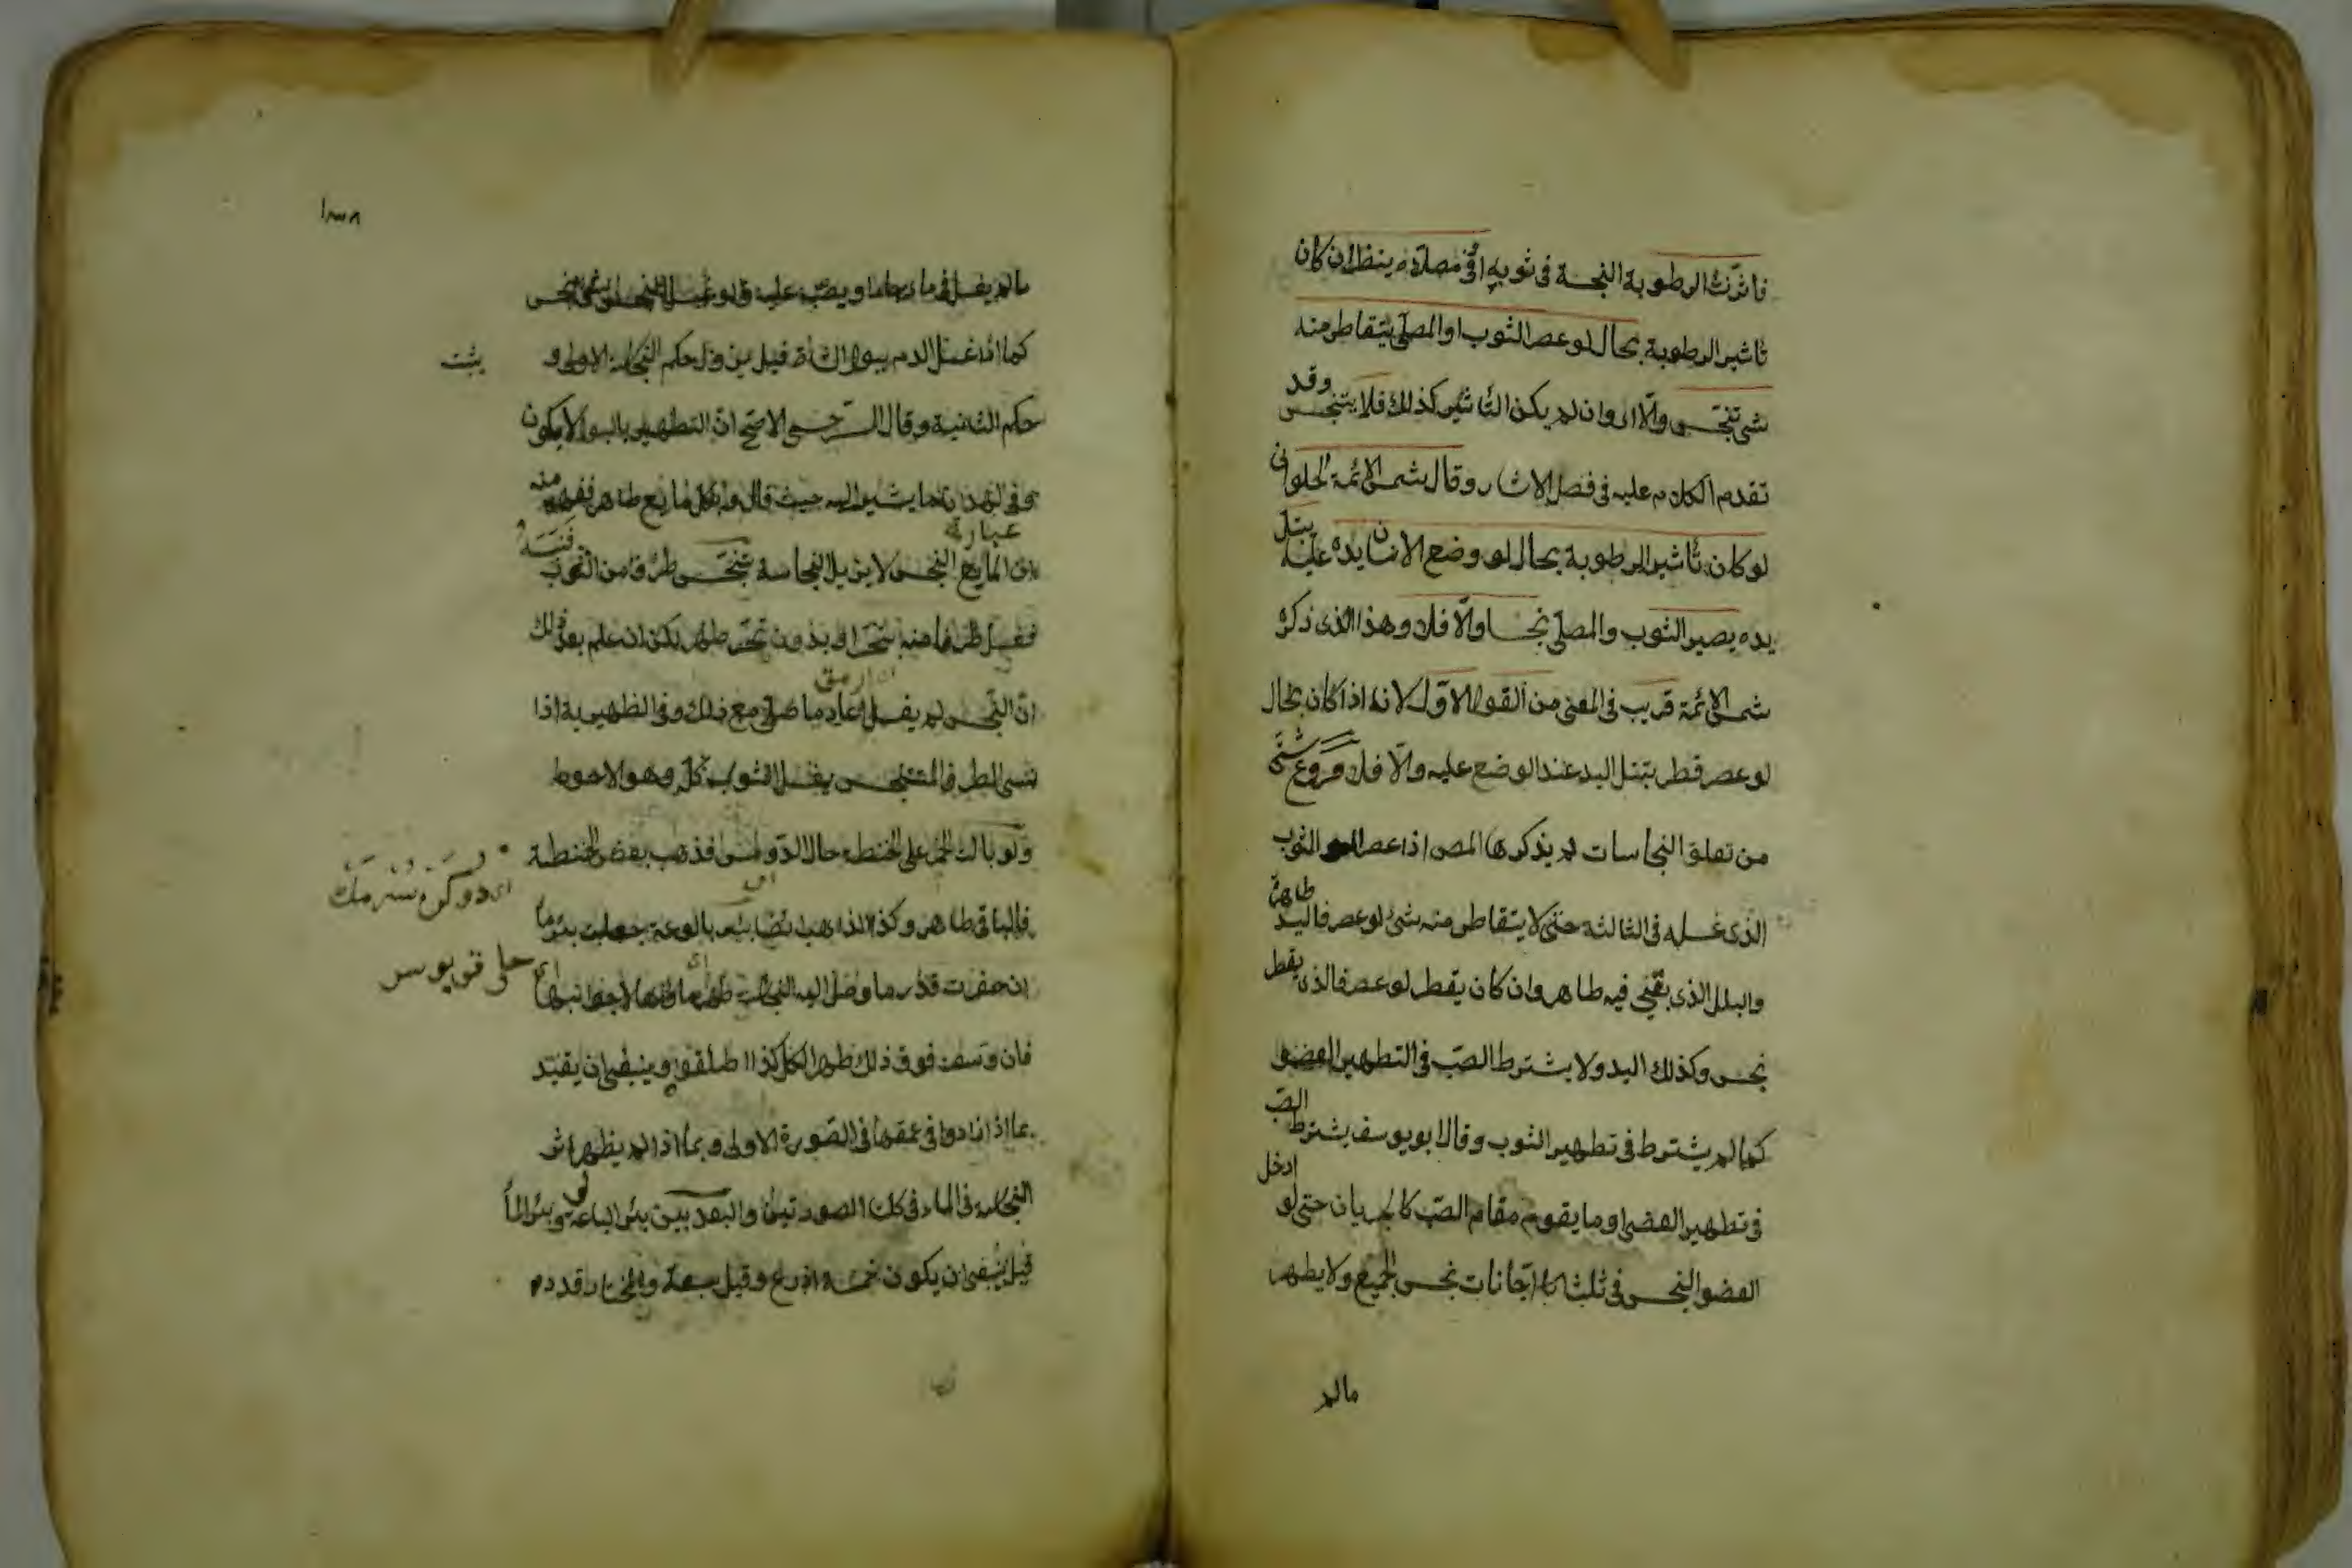 فاثرت الرطوبة النجسة فى ثوبه او فى مصلاه ينظر ان كان
تاثير الرطوبة بحال لو عصر الثوب او المصلى يتقاطر منه
شئ تنجس والا اى وان لم يكن التاثير كذلك فلا يتنجس وقد
تقدم الكلام عليه فى فصل الاثار وقال شمس الائمة الحلوانى
لو كان تاثير الرطوبة بحال لو وضع الانسان يده عليه يبتل
يده يصير الثوب والمصلى نجسا والا فلا وهذا الذى ذكره
شمس الائمة قريب فى المعنى من القول الاول لانه اذا كان بحال
لو عصر قطر يبتل اليد عند الوضع عليه والا فلا فروع شتى
من تعلق النجاسات لم يذكرها المص اذا عصر الثوب
الذى غسله فى الثالثة حتى لا يتقاطر منه شئ لو عصر فاليد طاهرة
والبلل الذى بقى فيه طاهر وان كان يقطر لو عصر فالذى يقطر
نجس وكذلك اليد ولا يشترط الصب فى التطهير العضو
كما لم يشترط فى تطهير الثوب وقال ابو يوسف يشترط الصب
فى تطهير العضو او ما يقوم مقام الصب كالجريان حتى لو ادخل
العضو النجس فى ثلث اجانات نجس الجميع ولا يطهر
مالم
مالم يغسل فى ماء جار او يصب عليه ولو غسل النجس
كما اذا غسل الدم ببول الشاة قيل يزول حكم النجاسة الاولى و يثبت
حكم الثانية وقال السرخسى الاصح ان التطهير بالبول لا يكون
حيث قال وبكل مايع طاهر ففهم منه
ان المايع النجس لا يزيل النجاسة تنجس طرف من الثوب فنسيه
فغسل طرفا منه بتحر او بدون تحر طهر لكن ان علم بعد ذلك
ان النجس لم يغسل اعاد ما صلى مع ذلك وفى الظهيرية اذا
نسى الطرف المتنجس يغسل الثوب كله وهو الاحوط
ولو بالت الحمر على الحنطة حال الدوس فذهب بعض الحنطة
فالباقى طاهر وكذا الذاهب ايضا بئر بالوعة جعلت بئر ماء
ان حفرت قدر ما وصل اليه النجاسة طهر ماؤها لا جوانبها
فان وسعت فوق ذلك طهر الكل كذا اطلقوا وينبغى ان يقيد
بما اذا زادوا فى عمقها فى الصورة الاولى وبما اذا لم يظهر اثر
النجاسة فى الماء فى كلا الصورتين والبعد بين بئر البالوعة وبئر الماء
قيل ينبغى ان يكون خمسة اذرع وقيل سبعة والمختار قدر